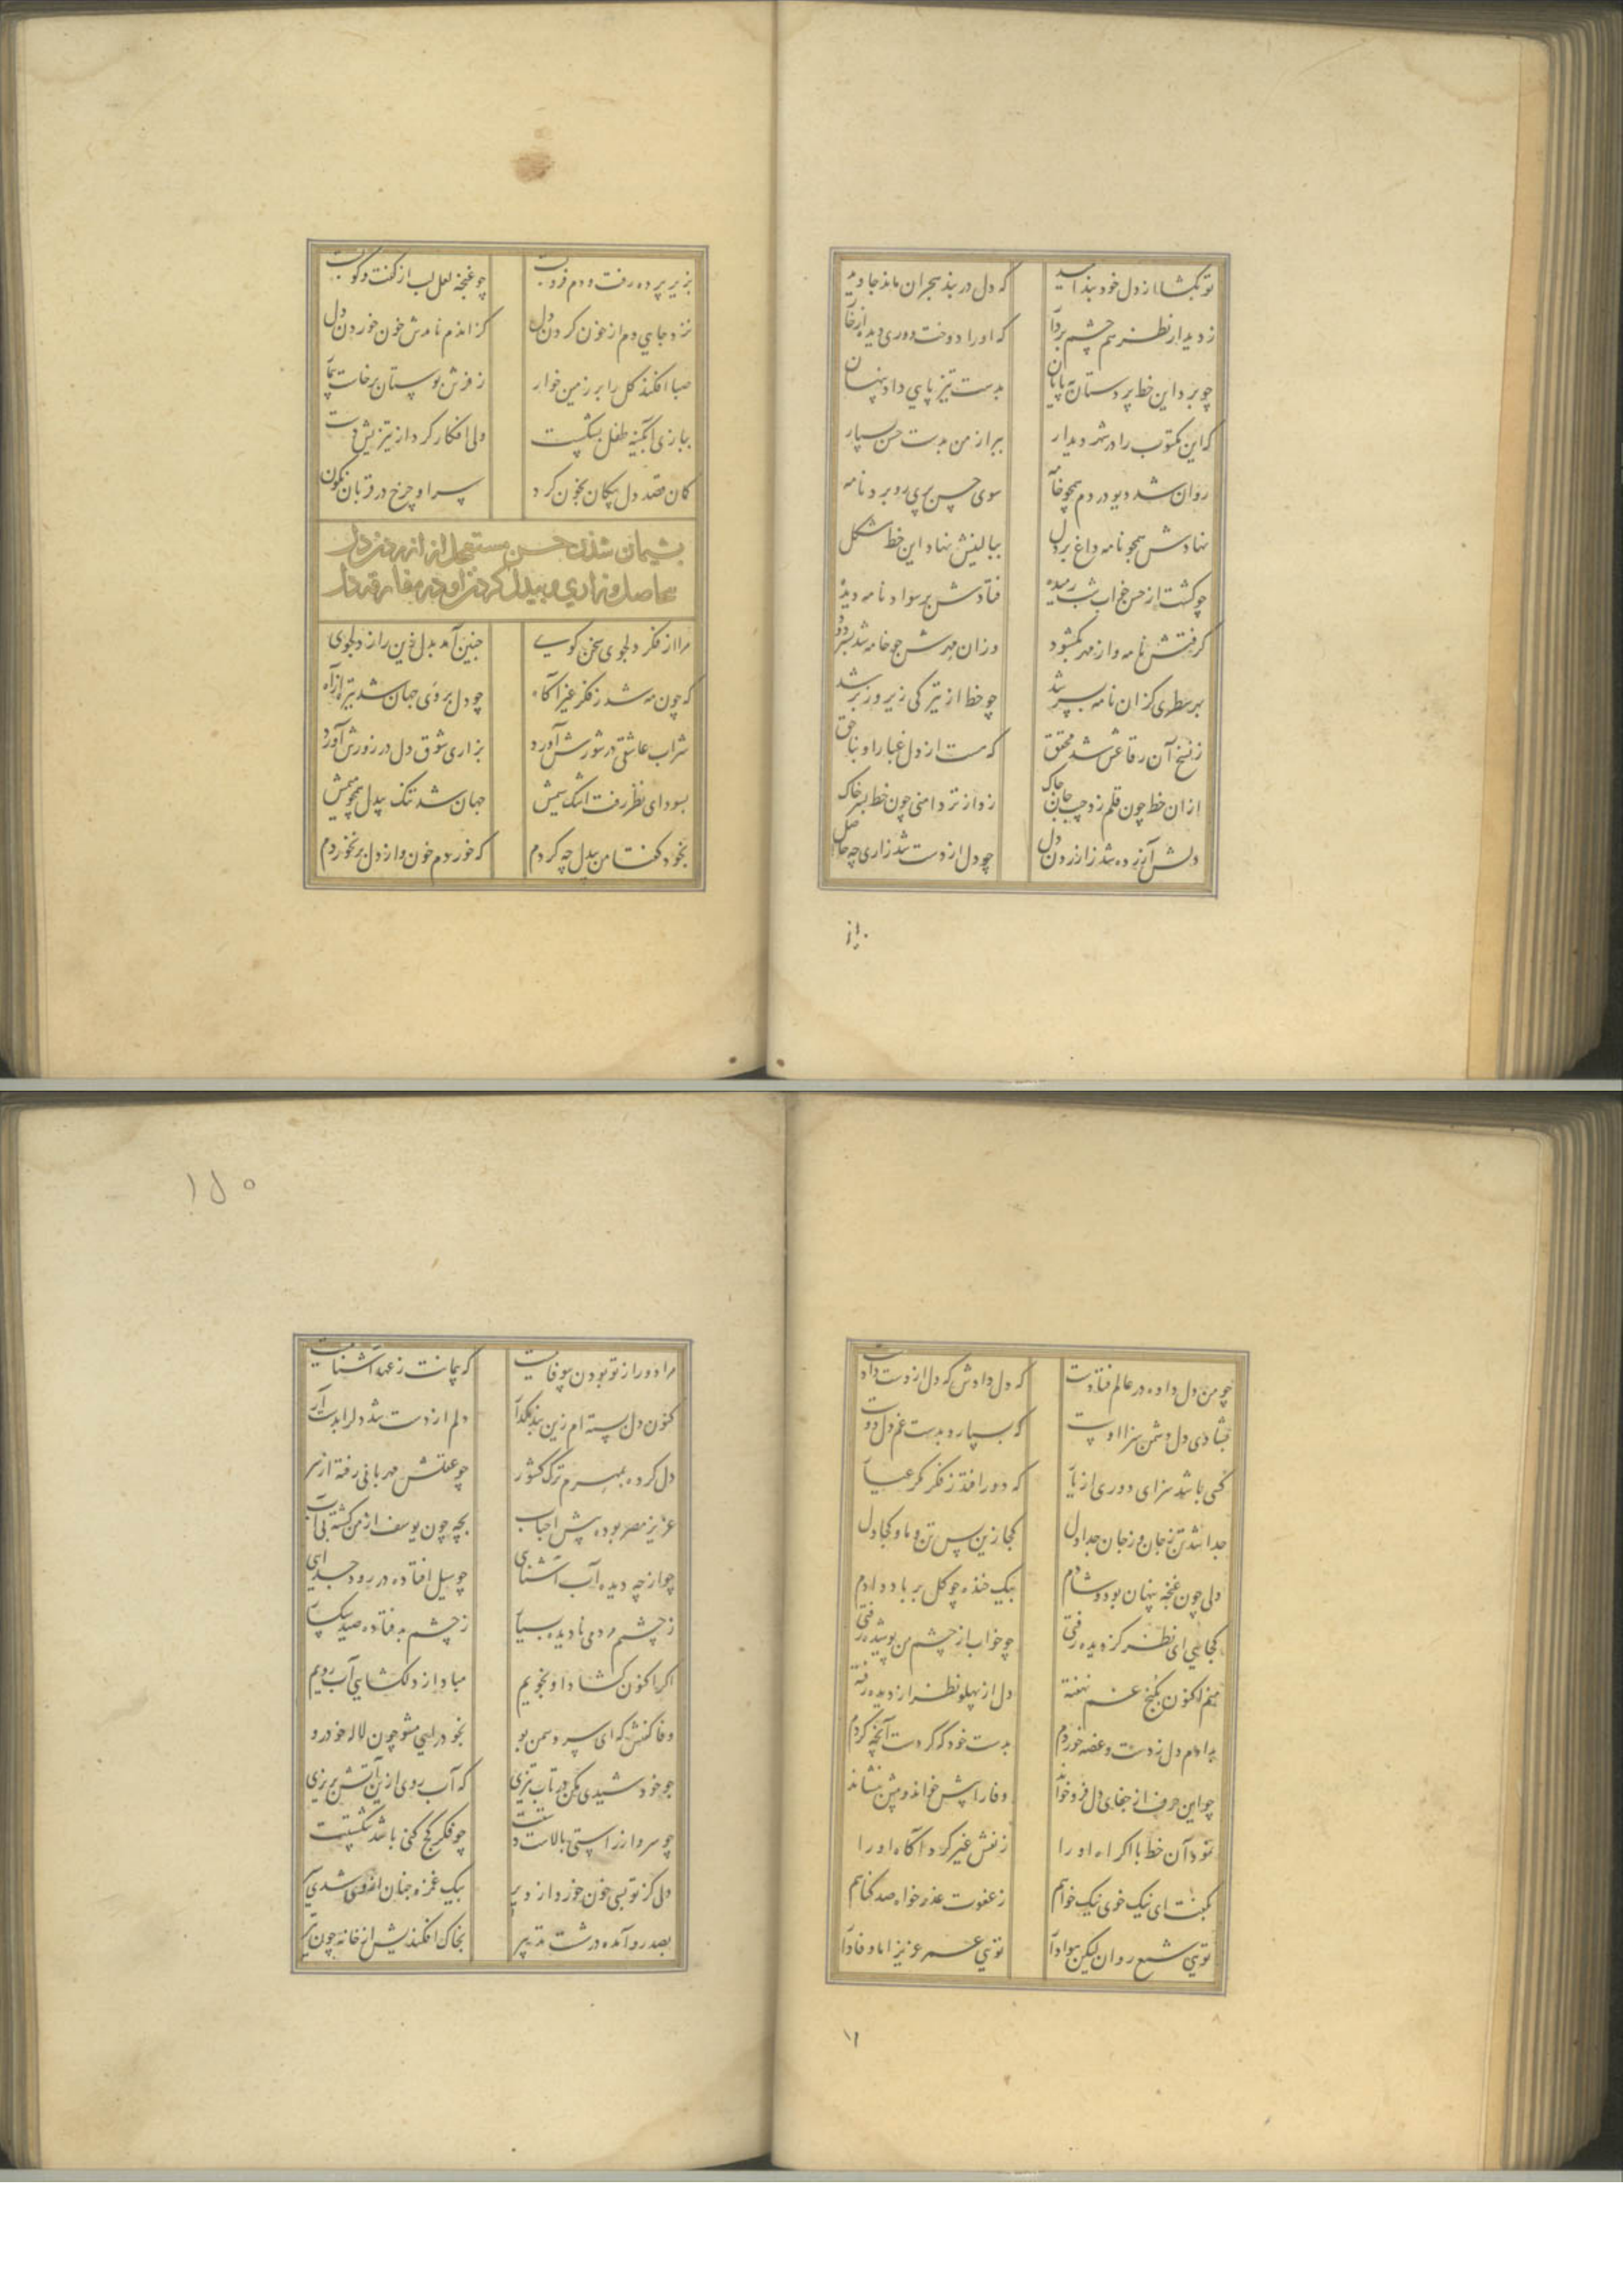 تو بگشا از دل خود بند امید که دل در بند هجران ماند جاوید
ز دیدار نظر هم چشم بردار که او را دوخت دوری دیده از خار
چو برد این خط پرستان به پایان بدست تیز پایی داد پنهان
که این مکتوب را در شهر دیدار ببر از من بدست حسن بسپار
روان شد دیو در دم همچو خامه سوی حسن پری رو برد نامه
نهادش همچو نامه داغ بر دل ببالینش نهاد این خط مشکل
چو گشت از حسن خواب شب رمیده فتادش بر سواد نامه دیده
گرفتش نامه و از مهر بگشود وزان مهرش چو خامه شد بسر دود
بهر سطری کزان نامه بسر شد چو خط از تیرگی زیر و زبر شد
ز نسخ آن رقاعش شد محقق که هست از دل غبار او بناحق
از آن خط چون قلم زد جیب جان چاک زد از تردامنی چون خط بسر خاک
دلش آزرده شد زازردن دل چو دل از دست شد زاری چه حاصل
بزیر پرده رفت و دم فروبست چو غنچه لعل لب از گفت و گو بست
نزد جایی دم از خون کردن دل کز اندم نامدش خون خوردن دل
صبا افکند گل را بر زمین خوار ز فرش بوستان برخاست
ببازی آبگینه طفل بشکست ولی افکار کرد از تیزیش دست
کمان قصد دل پیکان بخون کرد سر او چرخ در قربان نگون کرد
پشیمان شدن حسن مستعجل از آزردن دل
بیحاصل و زاری و بیدلی کردن او در مفارقت دل
مرا از فکر دلجوی سخن گوی چنین آمد بدل این راز دلجوی
که چون مه شد ز فکر غیر آگاه چو دل بر وی جهان شد تیره از آه
شراب عاشقی در شورش آورد بزاری شوق دل در زورش آورد
بسودای نظر رفت اشک سیمش جهان شد تنگ بیدل همچو میمش
بخود گفتا من بیدل چه کردم که خوردم خون و از دل برنخوردم
چو من دل داده در عالم فتادست که دل دادش که دل از دست دادست
بشادی دل دشمن سزا اوست که بسپارد بدست غم دل دوست
کسی باشد سزای دوری از یار که دور افتد ز فکر مکر عیار
جدا شد تن ز جان و ز جان جدا دل کجا زین پس تن و ما و کجا دل
دلی چون غنچه پنهان بود و شادم بیک خنده چو گل بر باد دادم
کجایی ای نظر کز دیده رفتی چو خواب از چشم من پوشیده رفتی
منم اکنون بکنج غم نهفته دل از پهلو نظر از دیده رفته
بدادم دل ز دست و غصه خوردم بدست خود که کردست آنچه کردم
چو این حرف از جفای دل فروخواند وفا را پیش خواند و پیش بنشاند
نمود آن خط با اکراه او را ز نقش غیر کرد آگاه او را
بگفت ای نیک خوی نیک خواهم ز عفوت عذر خواه صد گناهم
تویی شمع روان لیکن هوادار تویی عمر عزیز اما وفادار
مرا دور از تو بودن بیوفاییست که پیمانت ز عهد آشناییست
کنون دل بسته ام زین بند مگذار دلم از دست شد دل را بدست آر
دل کرده بمهرم ترک کشور چو عقلش مهربانی رفته از سر
عزیز مصر بوده پیش احباب بچه چون یوسف از من گشته بی آب
چو از چه دیده آب آشنایی چو سیل افتاده در رود جدایی
ز چشم مردمی نادیده بسیار ز چشم بد فتاده صید
اگر اکنون گشاد او نجویم مباد از دلگشایی آب رویم
وفا گفتش که ای سرو سمن بو بخود رایی مشو چون لاله خودرو
چو خورشیدی مکن در تاب تیزی که آب روی ازین آتش بریزی
چو سرو ار راستی بالات چو فکر کج کنی باشد شکستت
دلی کز تو بسی خون خورد از دیر بیک غمزه چنان از وی شدی سیر
بصد رو آمده در شست تدبیر بخاک افکندیش از خانه چون تیر
۱۵۰